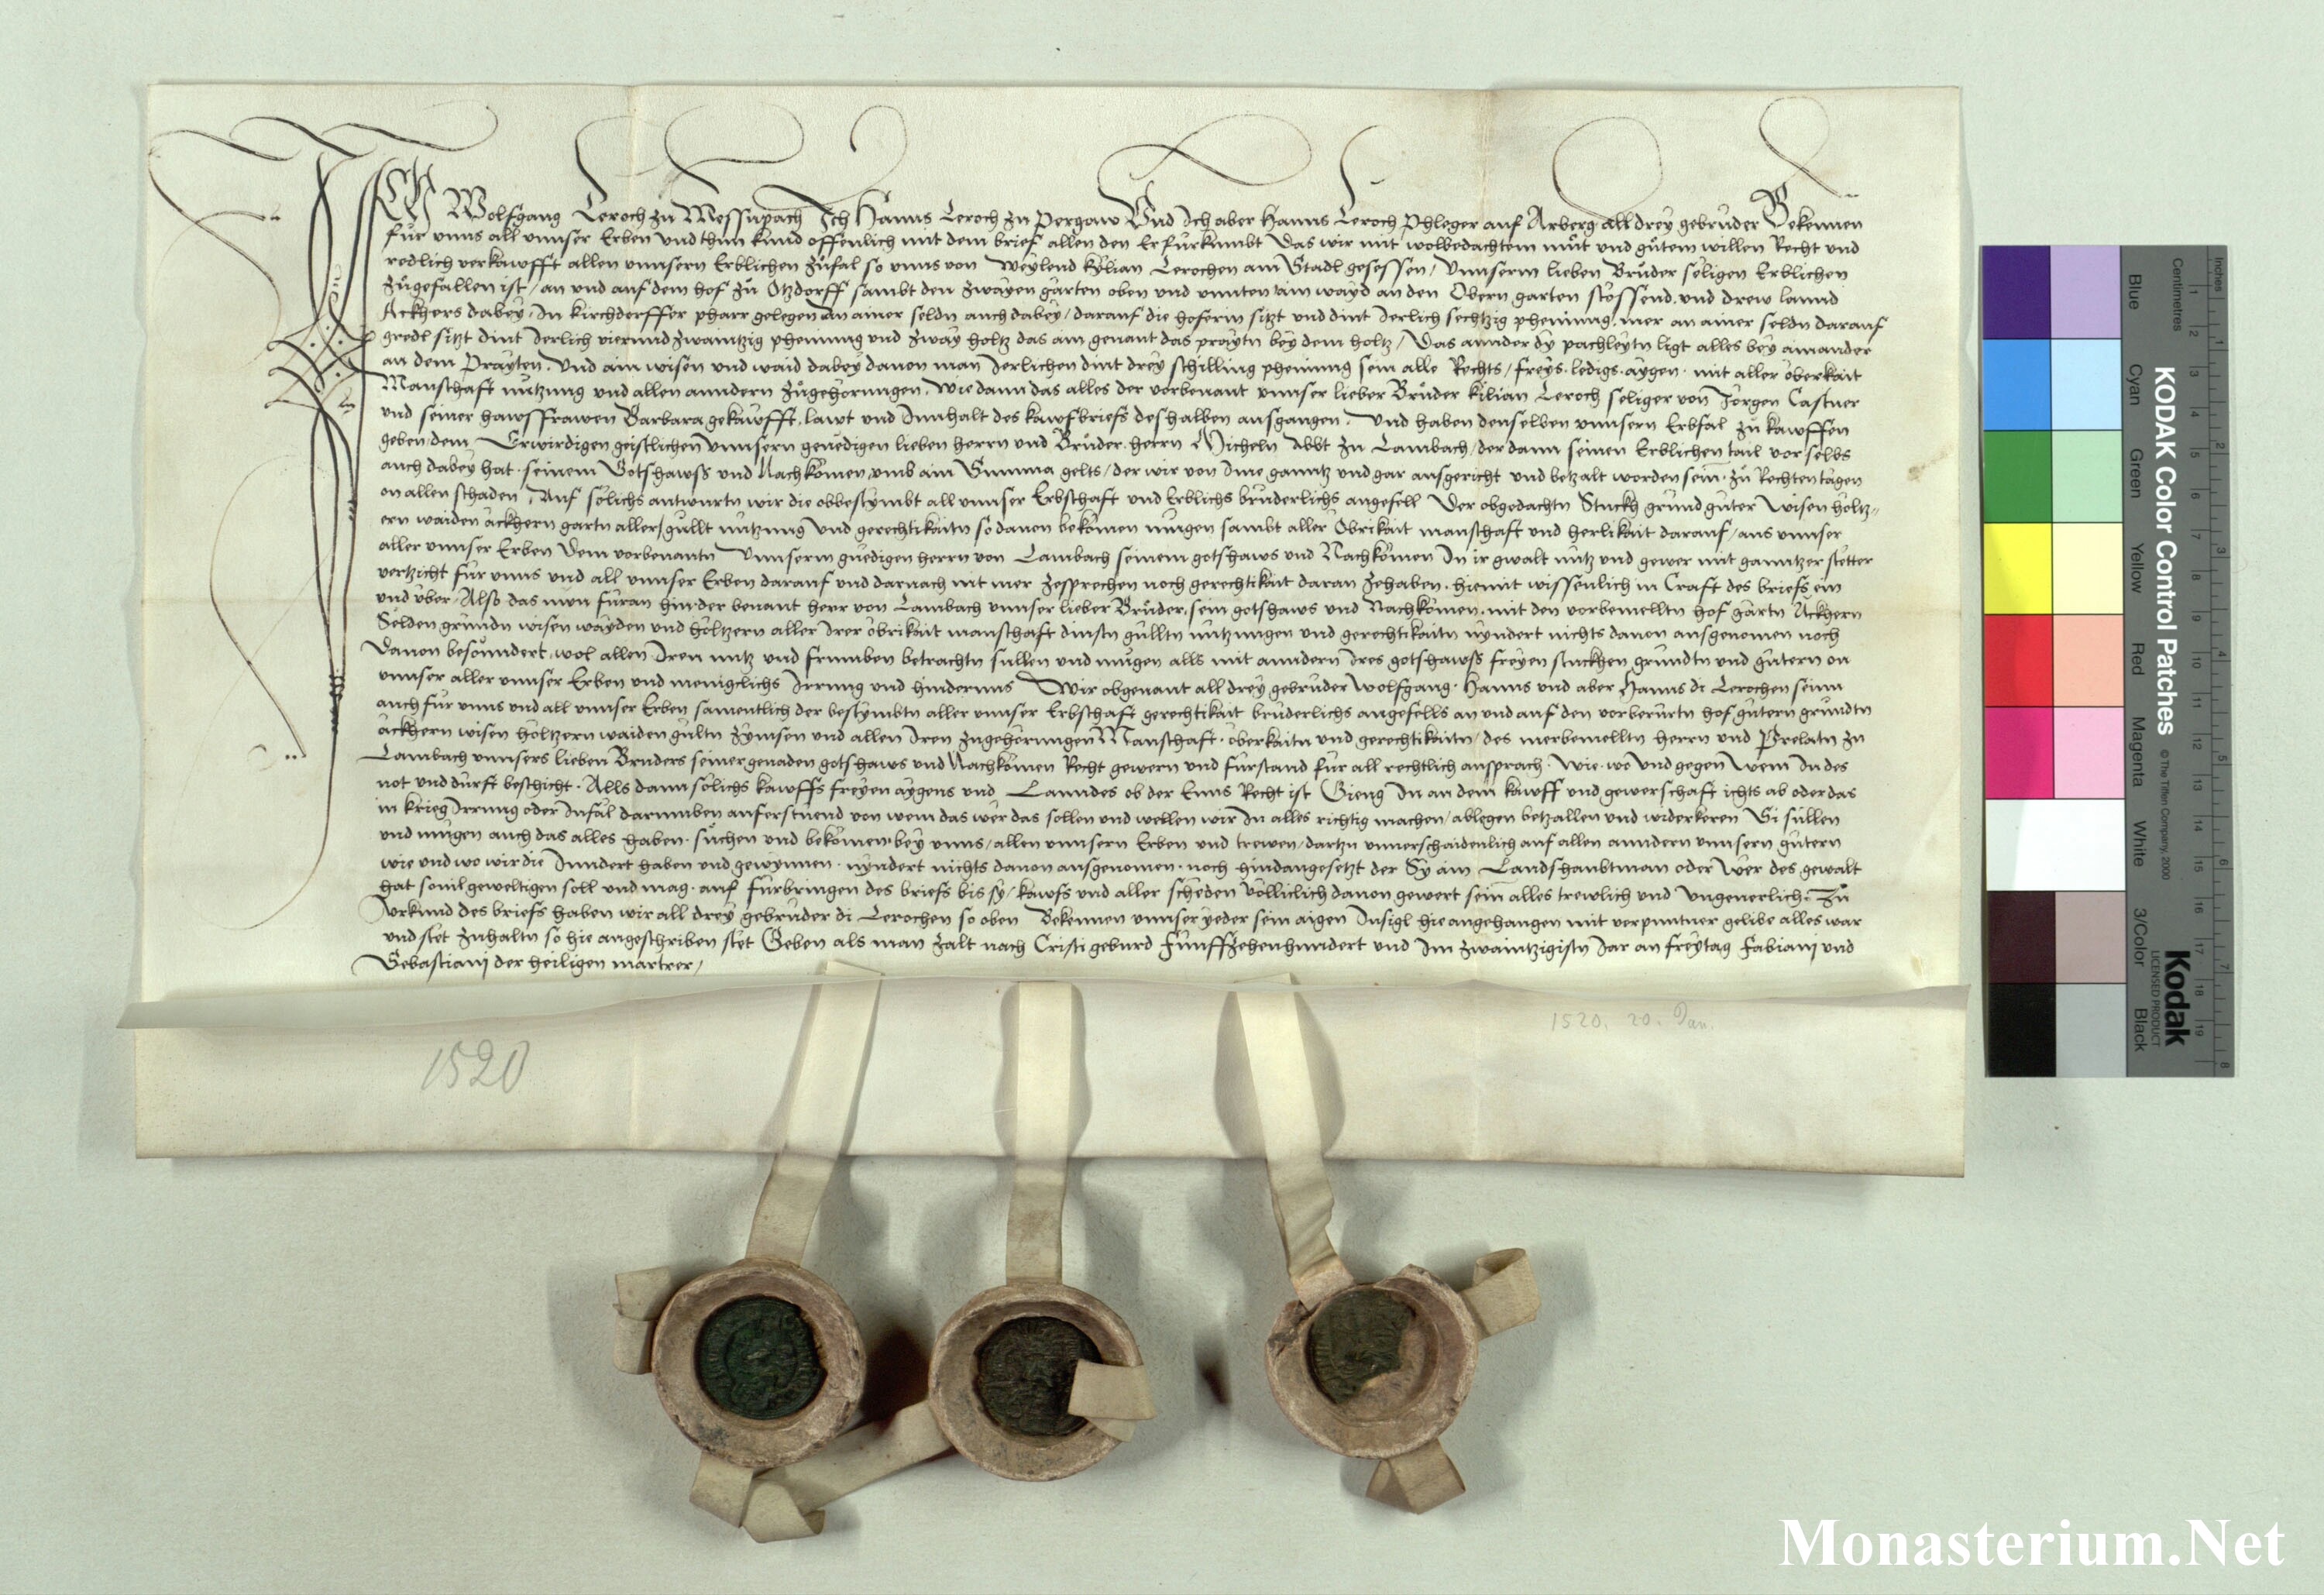 ICh Wolfgang Leroch zu Messnpach Ich Hanns Leroch zu Pergaw Und Ich aber Hanns Leroch Phleger auf Arberg all drey gebruder Bekennen
fur unns all unnser Erben und thun kund offenlich mit dem brief allen den Er furkumbt Das wir mit wolbedachtem mut und gutem willen Recht und
redlich verkawfft allen unnsern Erblichen zufal so unns von weylend kylian Lerochen am Stadl gesessen / Unnserm lieben Bruder seligen Erblichen
zugefallen ist / an und auf dem hof zu Otzdorff sambt den zwayen garten oben und unnten ain wayd an den Obern garten stossend und drew lannd
Ackhers dabey In kirchdorffer pharr gelegen An ainer seldn auch dabey / darauf die hoferin sitzt und dint Jerlich sechtzig phening mer an ainer seldn darauf
gredl sitzt dint Jerlich vierundzwaintzig phening und zway holtz das ain genant das praytn bey dem holtz / Das annder dy pachleytn ligt alles bey ainander
an dem Prayten Und ain wisen und waid dabey davon man Jerlichen dint drey schilling phening sein alle Rechts / freys ledigs aygen mit aller oberkait
Manschaft nutzung und allen anndern zugehorungen Wie dann das alles der vorbenant unnser lieber Bruder kilian Leroch seliger von Jorgen Castner
und seiner hawsfrawen Barbara gekawfft lawt und Innhalt des kawfbriefs deshalben ausgangen Und haben denselben unnsern Erbfal zu kawffen
geben dem Erwirdigen geistlichen unnsern genedigen lieben herrn und Bruder herrn Micheln Abbt zu Lambach / der dann seinen Erblichen tail vor selbs
auch dabey hat seinem Gotshawss und Nachkomen umb ain Summa gelts / der wir von Ime ganntz und gar ausgericht und betzalt worden sein zu Rechten tagen
on allen schaden Auf solichs antwurtn wir die obbestymbt all unnser Erbschaft und Erblichs bruderlichs angefell Der obgedachtn Stuckh grund guter Wisen holtz=
ern waiden ackhern gartn aller gullt nutzung und gerechtikaitn so davon bekomen mugen sambt aller Obrikait manschaft und herlikait darauf / aus unnser
aller unnser Erben Dem vorbenantn Unnserm gnedigen herrn von Lambach seinem gotshaws und Nachkomen In ir gwalt nutz und gewer mit ganntzer stetter
vertzicht fur unns und all unnser Erben darauf und darnach nit mer zesprechen noch gerechtikait daran zehaben hiemit wissenlich in Craft des briefs ein
und uber Also das nun furan hin der benant herr von Lambach unnser lieber Bruder sein gotshaws und Nachkomen mit den vorbemelltn hof gartn Ackhern
Selden grundn wisen wayden und holtzern aller Irer obrikait manschaft dinstn gulltn nutzungen und gerechtikaitn nyndert nichts davon ausgenomen noch
davon besonndert wol allen Iren nutz und frumben betrachtn sullen und mugen alls mit anndern Ires gotshawss freyen stuckhen grundtn und gutern on
unnser aller unnser Erben und meniglichs Irrung und hindernus Wir obgenant all drey gebruder Wolfgang Hanns und aber Hanns di Lerochen seinn
auch fur unns und all unnser Erben samentlich der bestymbtn aller unnser Erbschaft gerechtikait bruderlichs angefells an und auf den vorberurtn hof gutern grundtn
ackhern wisen holtzern waiden gultn zynnsen und allen Iren zugehorungen Manschaft oberkaitn und gerechtikaitn / des merbemelltn herrn und Prelatn zu
Lambach unnsers lieben Bruders seiner genaden gotshaws und Nachkomen Recht gewern und furstand fur all rechtlich ansprach Wie wo und gegen Wem In des
not und durft beschicht Alls dann solichs kawffs freyen aygens und Lanndes ob der Enns Recht ist Gieng In an dem kawff und gewerschaft ichts ab oder das
in krieg Irrung oder Infal darumben auferstuend von wem das wer das sollen und wellen wir In alles richtig machen / ablegen betzallen und widerkeren Si sullen
und mugen auch das alles haben suchen und bekomen bey unns / allen unnsern Erben und trewen / dartzu unverschaidenlich auf allen anndern unnsern gutern
wie und wo wir die Inndert haben und gewynnen nyndert nichts davon ausgenomen noch hindangesetzt der Sy ain Landshaubtman oder Wer des gewalt
hat sovil geweltigen soll und mag auf furbringen des briefs bis sy / kawfs und aller scheden volliclich davon gewert sein alles trewlich und ungeverlich Zu
Urkund des briefs haben wir all drey gebruder di Lerochen so oben Bekennen unnser yeder sein aigen Insigl hie angehangen mit verpuntner gelibe alles war
und stet zuhaltn so hie angeschriben stet Geben als man zalt nach Cristi geburd Funffzehenhundert und Im zwaintzigistn Jar an freytag Fabiani und
Sebastiani der heiligen martrer /
1520. 20. Jan.
1520
Inches
Centimetres
KODAK Color Control Patches © The Tiffen Company, 2000
Kodak
LICENSED PRODUCT
Blue Cyan Green Yellow Red Magenta White 3/Color Black
Monasterium.Net